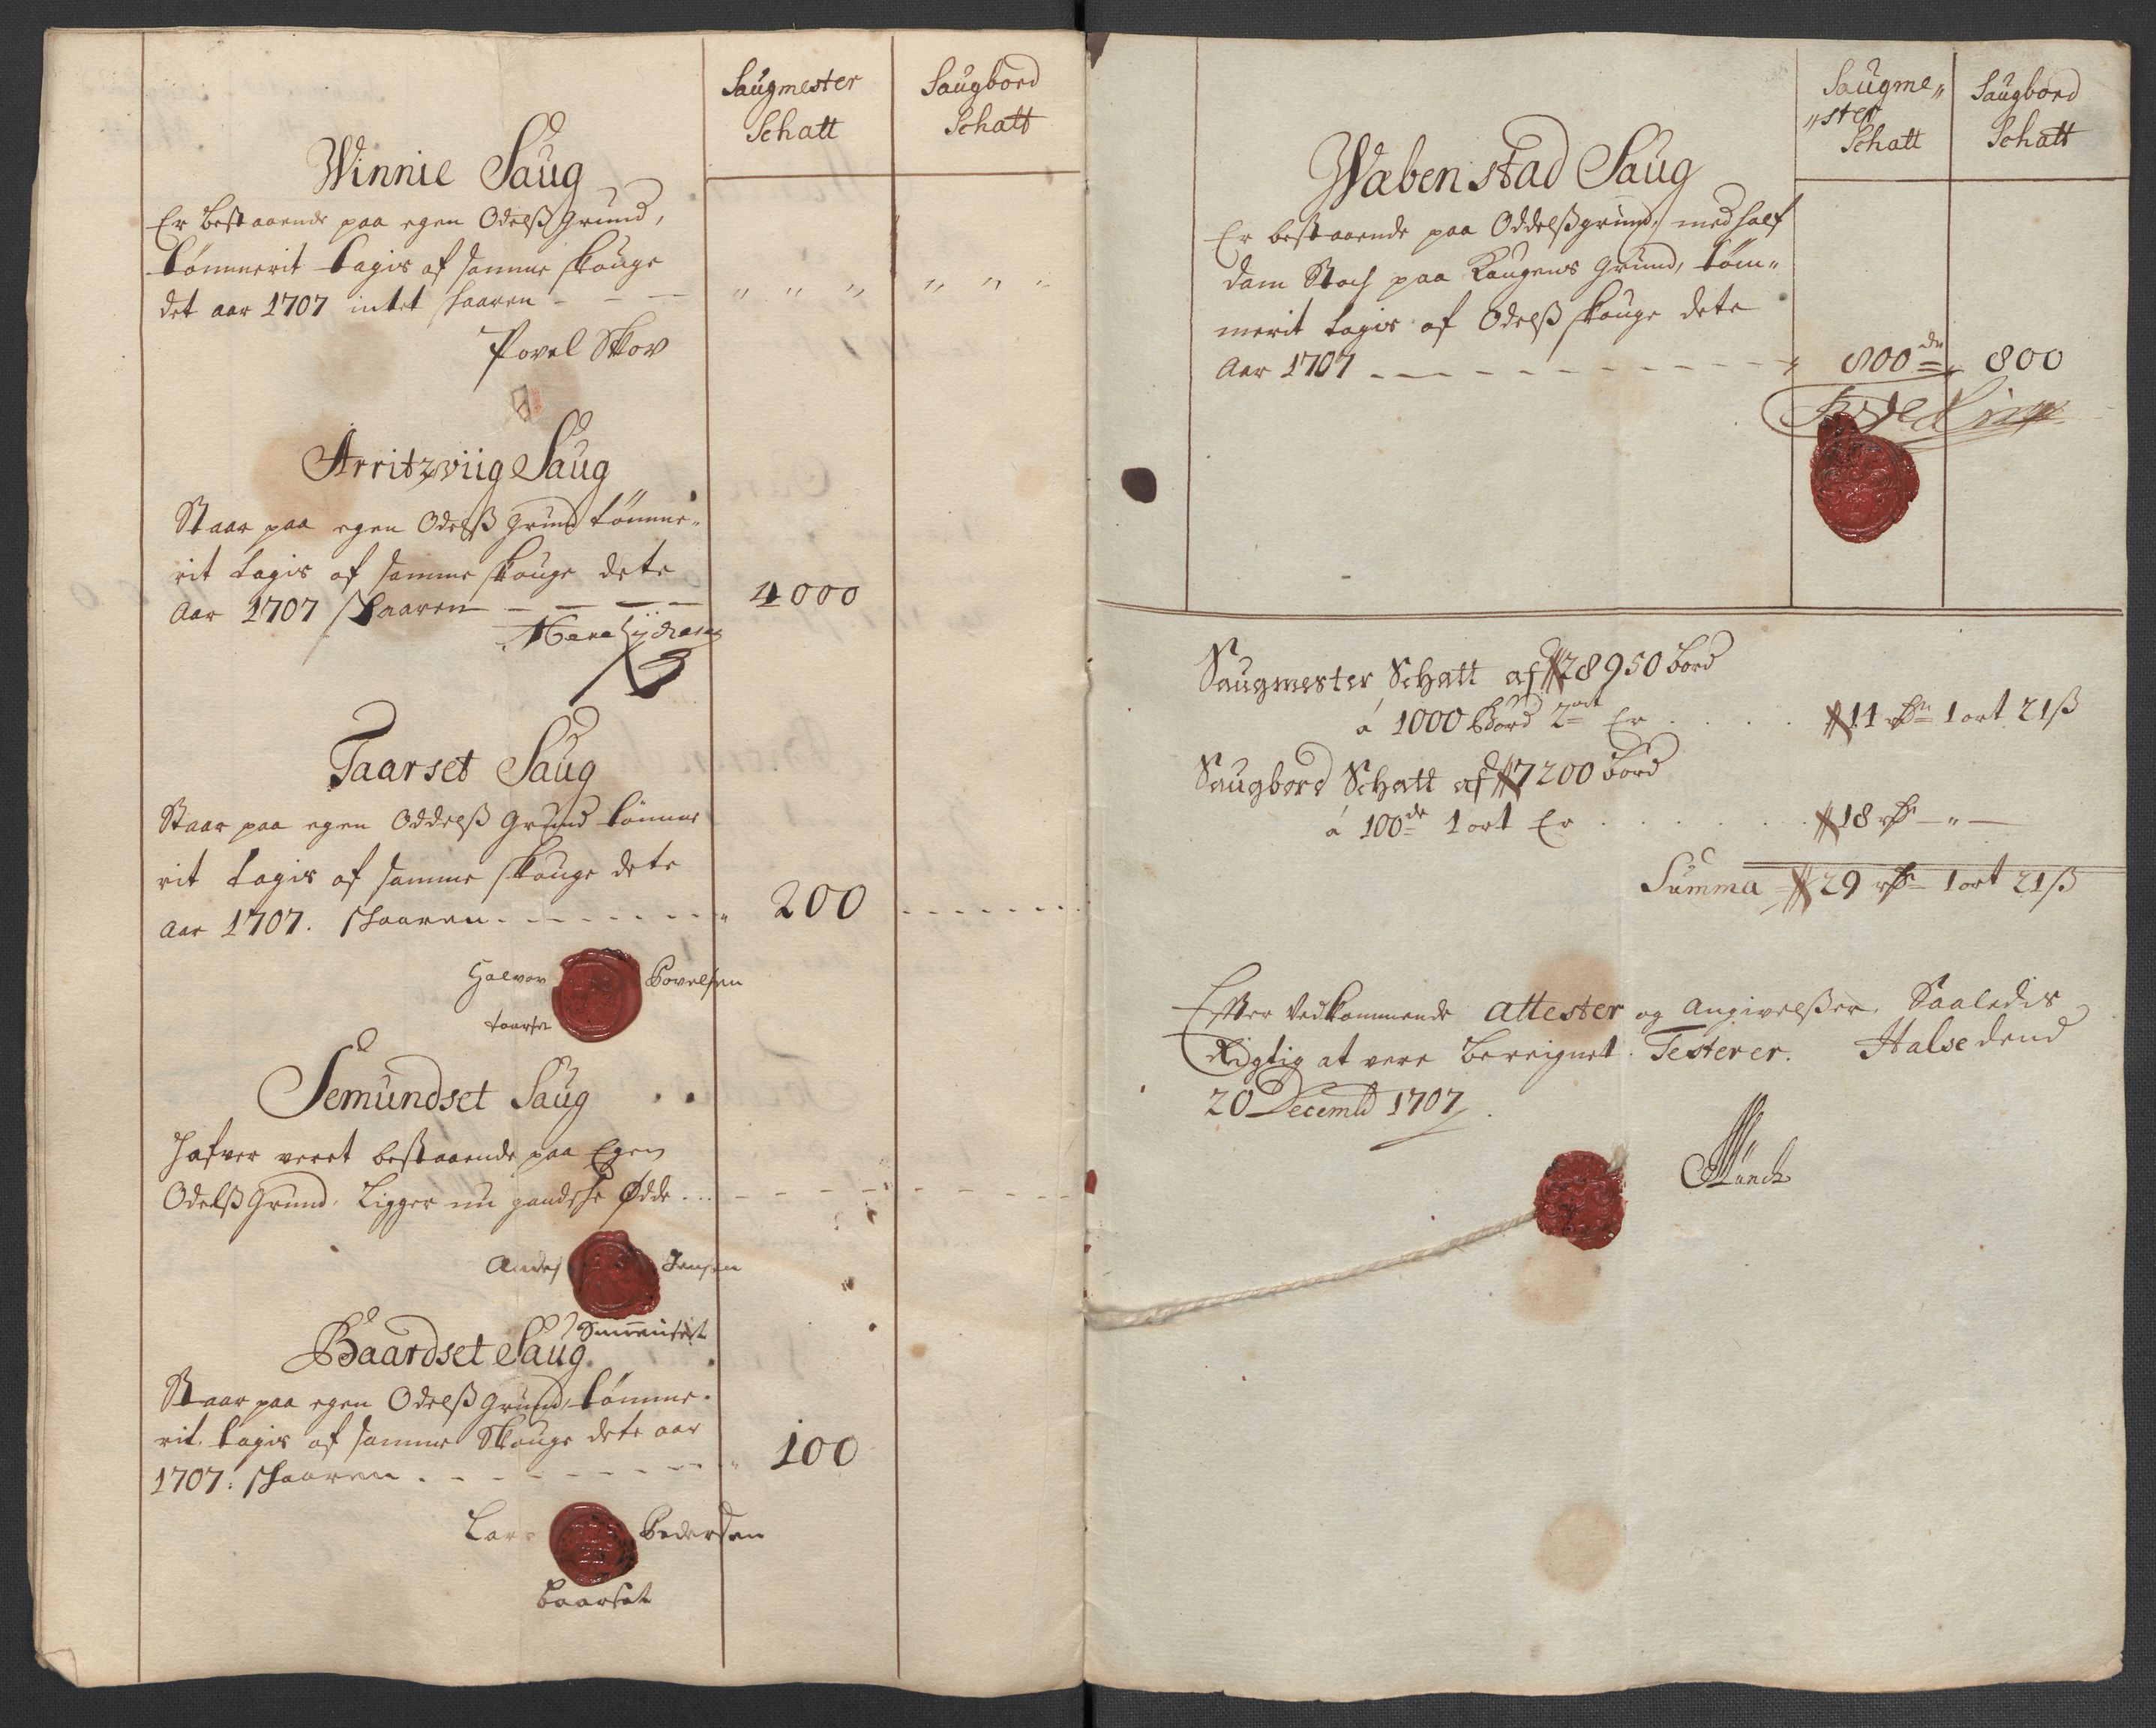 Saugmester
Schatt
Saugbord
Schatt
Winnie Saug
Er bestaaende paa egen Odelß grund,
tømmerit tagis af samme skouge
det aar 1707 intet skaaren - - -
" " " " " "
Povel Skov
Arritzviig Saug
Staar paa egen Odelß grund tømme-
rit tagis af samme skouge dete
Aar 1707 skaaren - - - - 4000
Taarset Saug
Staar paa egen Oddelß grund tømme
rit tagis af samme skouge dete
Aar 1707. skaaren - - - - - - " 200
Halvor Povelsen
taarset
Semundset Saug
Hafver veret bestaaende paa Egen
Odelß Grund, Ligger nu gandske Ødde
Anders Jensen
Baardset Saug
Staar paa egen Odelß grund, tømme-
rit tagis af samme Skouge dete aar
1707: skaaren - - - - - - " 100
Lars Pedersen
Baarset
Saugme"
"ster
Schatt
Saugbord
Schatt
Wæbenstad Saug
Er bestaaende paa Oddelßgrund, med half
dam Stoch paa Kongens Grund, tøm"
merit tagis af Odelß skouge dete
Aar 1707 - - - - - - - - " 800 " 800
Saugmester Schatt af 28950 bord
á 1000 Bord 2 ort Er . . . . 11 rdr 1 ort 21 ß
Saugbord Schatt af 7200 bord
á 100de 1 ort Er . . . . . . 18 rdr - " -
Summa 29 rdr 1 ort 21 ß
Efter Vedkommende attester og Angivelßer, Saaledis
Rigtig at vere bereignet. Testerer. Halse dend
20 Decembr 1707
Münch